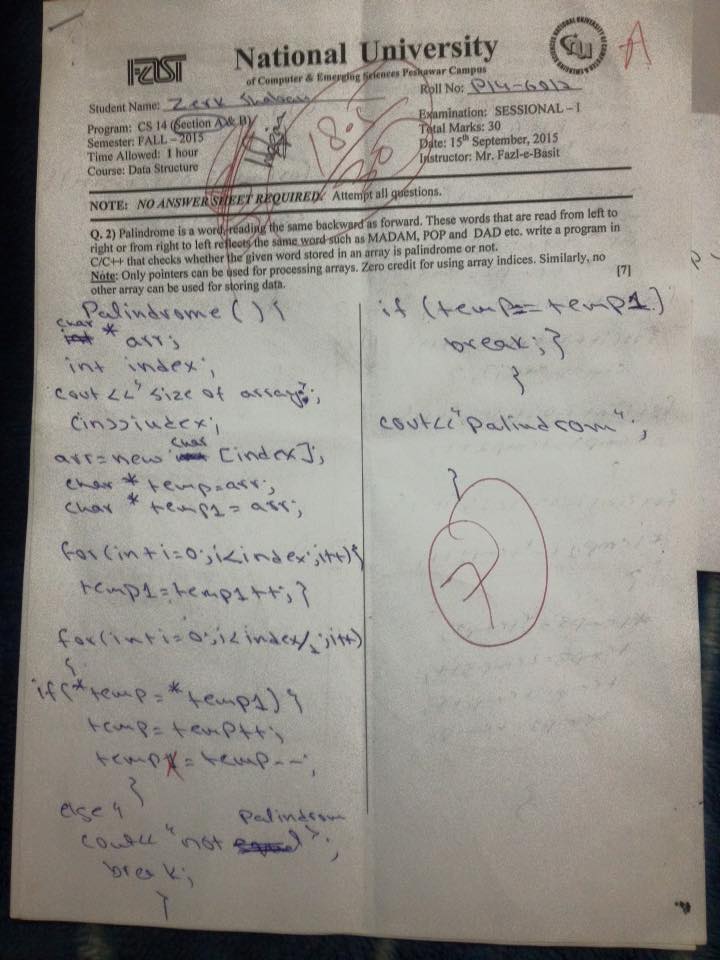 FAST
National University
of Computer & Emerging Sciences Peshawar Campus
A
Roll No: P14-6012
Student Name: Zerk Shaban
Program: CS 14 (Section A & B)
Semester: FALL – 2015
Time Allowed: 1 hour
Course: Data Structure
Examination: SESSIONAL – I
Total Marks: 30
Date: 15th September, 2015
Instructor: Mr. Fazl-e-Basit
18.5
30
NOTE: NO ANSWER SHEET REQUIRED. Attempt all questions.
Q. 2) Palindrome is a word, reading the same backward as forward. These words that are read from left to
right or from right to left reflects the same word such as MADAM, POP and DAD etc. write a program in
C/C++ that checks whether the given word stored in an array is palindrome or not.
[7]
Note: Only pointers can be used for processing arrays. Zero credit for using array indices. Similarly, no
other array can be used for storing data.
Palindrome () {
char * arr;
int index;
cout << " size of array";
cin>>index;
arr=new char [index];
char * temp=arr;
char * temp1 = arr;
for(int i=0;i<index;i++){
temp1=temp1++; }
for(int i=0;i<index/2;i++)
{
if(*temp=*temp1) {
temp=temp++;
temp1=temp--;
}
else {
cout<< "not Palindrom";
break;
}
if (temp==temp1)
break; }
}
cout<<"Palindrom";
}
7